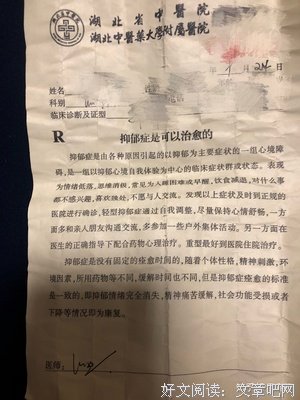 湖北省中医院
湖北中医药大学附属医院
年 月 24日
姓名
科别
临床诊断及证型
R 抑郁症是可以治愈的
抑郁症是由各种原因引起的以抑郁为主要症状的一组心境障
碍，是一组以抑郁心境自我体验为中心的临床症状群或状态。表现
为情绪低落，思维消极，常见为入睡困难或早醒，饮食减退，对什么事
都不感兴趣，喜欢独处，不愿与人交流。发现以上症状及时到正规的
医院进行确诊，轻型抑郁症通过自我调整，尽量保持心情舒畅，一方
面多和亲人朋友沟通交流，多参加一些户外集体活动。另一方面在
医生的正确指导下配合药物心理治疗。重型最好到医院住院治疗。
抑郁症是没有固定的痊愈时间的，随着个体性格，精神刺激，环
境因素，所用药物等不同，缓解时间也不同，但是抑郁症痊愈的标准
是一致的，即抑郁情绪完全消失，精神痛苦缓解，社会功能受损或者
下降等情况即为康复。
医师：
好文阅读：文章吧网